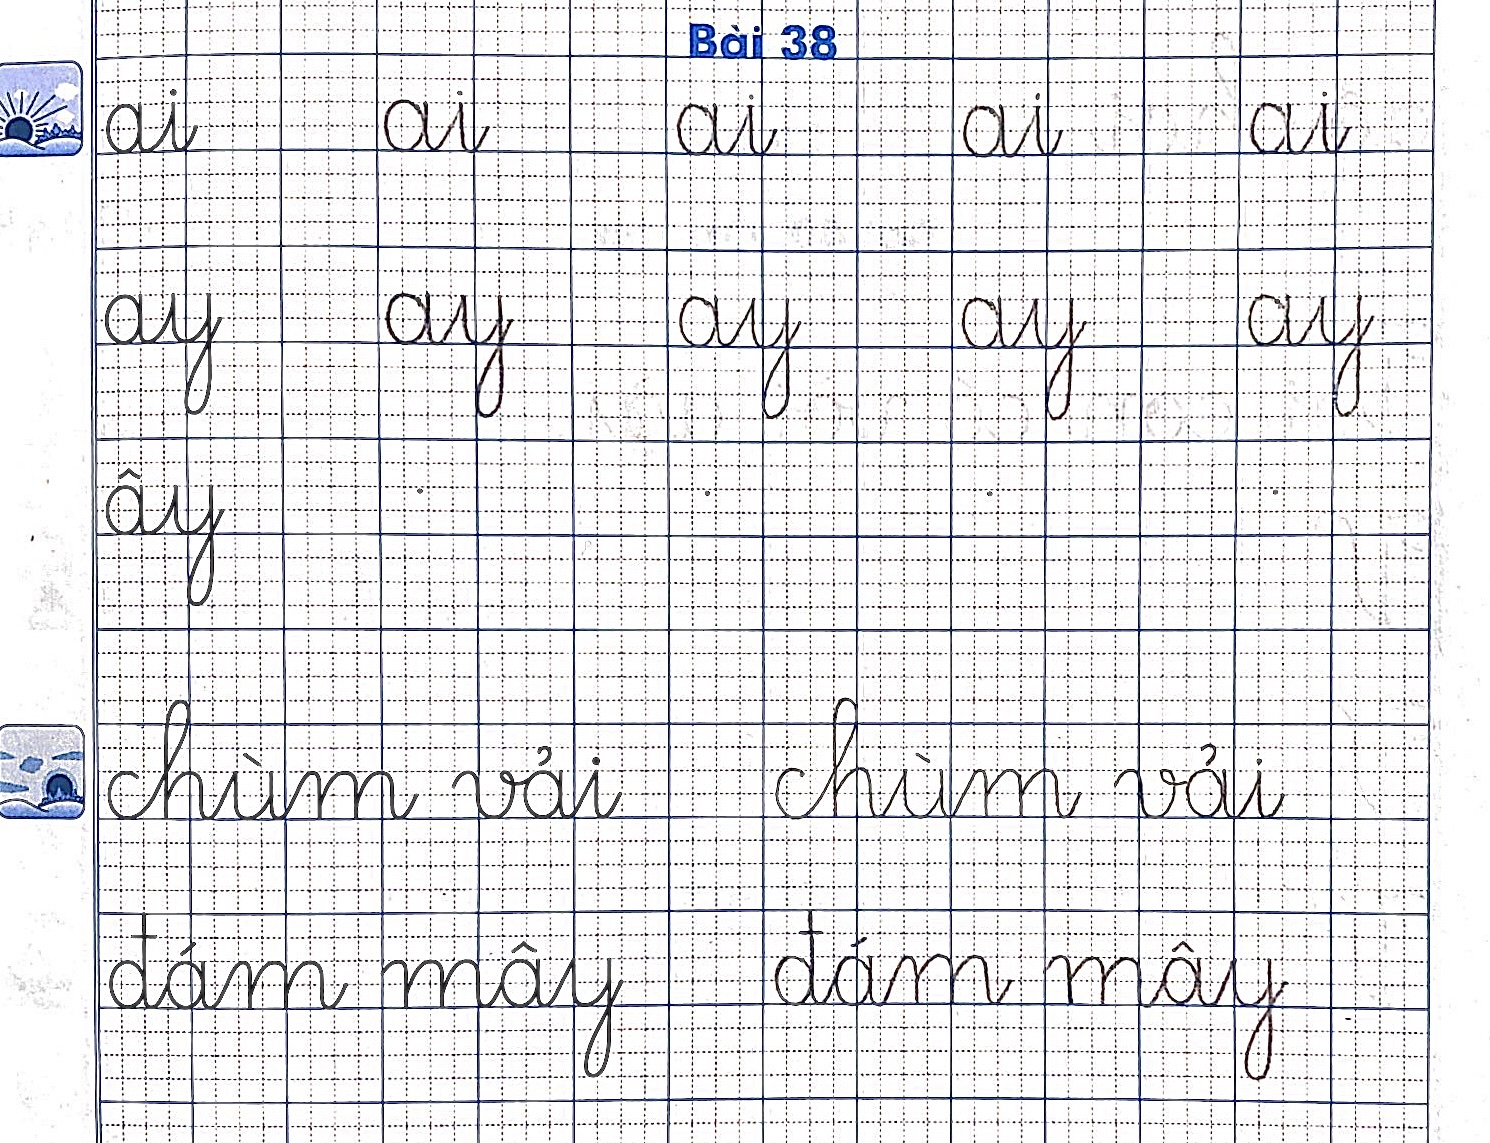 Bài 38
ai ai ai ai ai
ay ay ay ay ay
ây
chùm vải chùm vải
đám mây đám mây